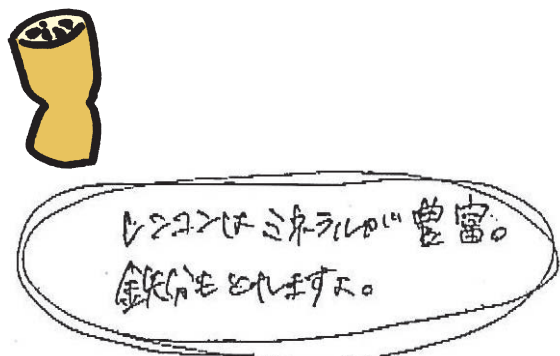 レンコンはミネラルが豊富。
鉄分もとれますよ。